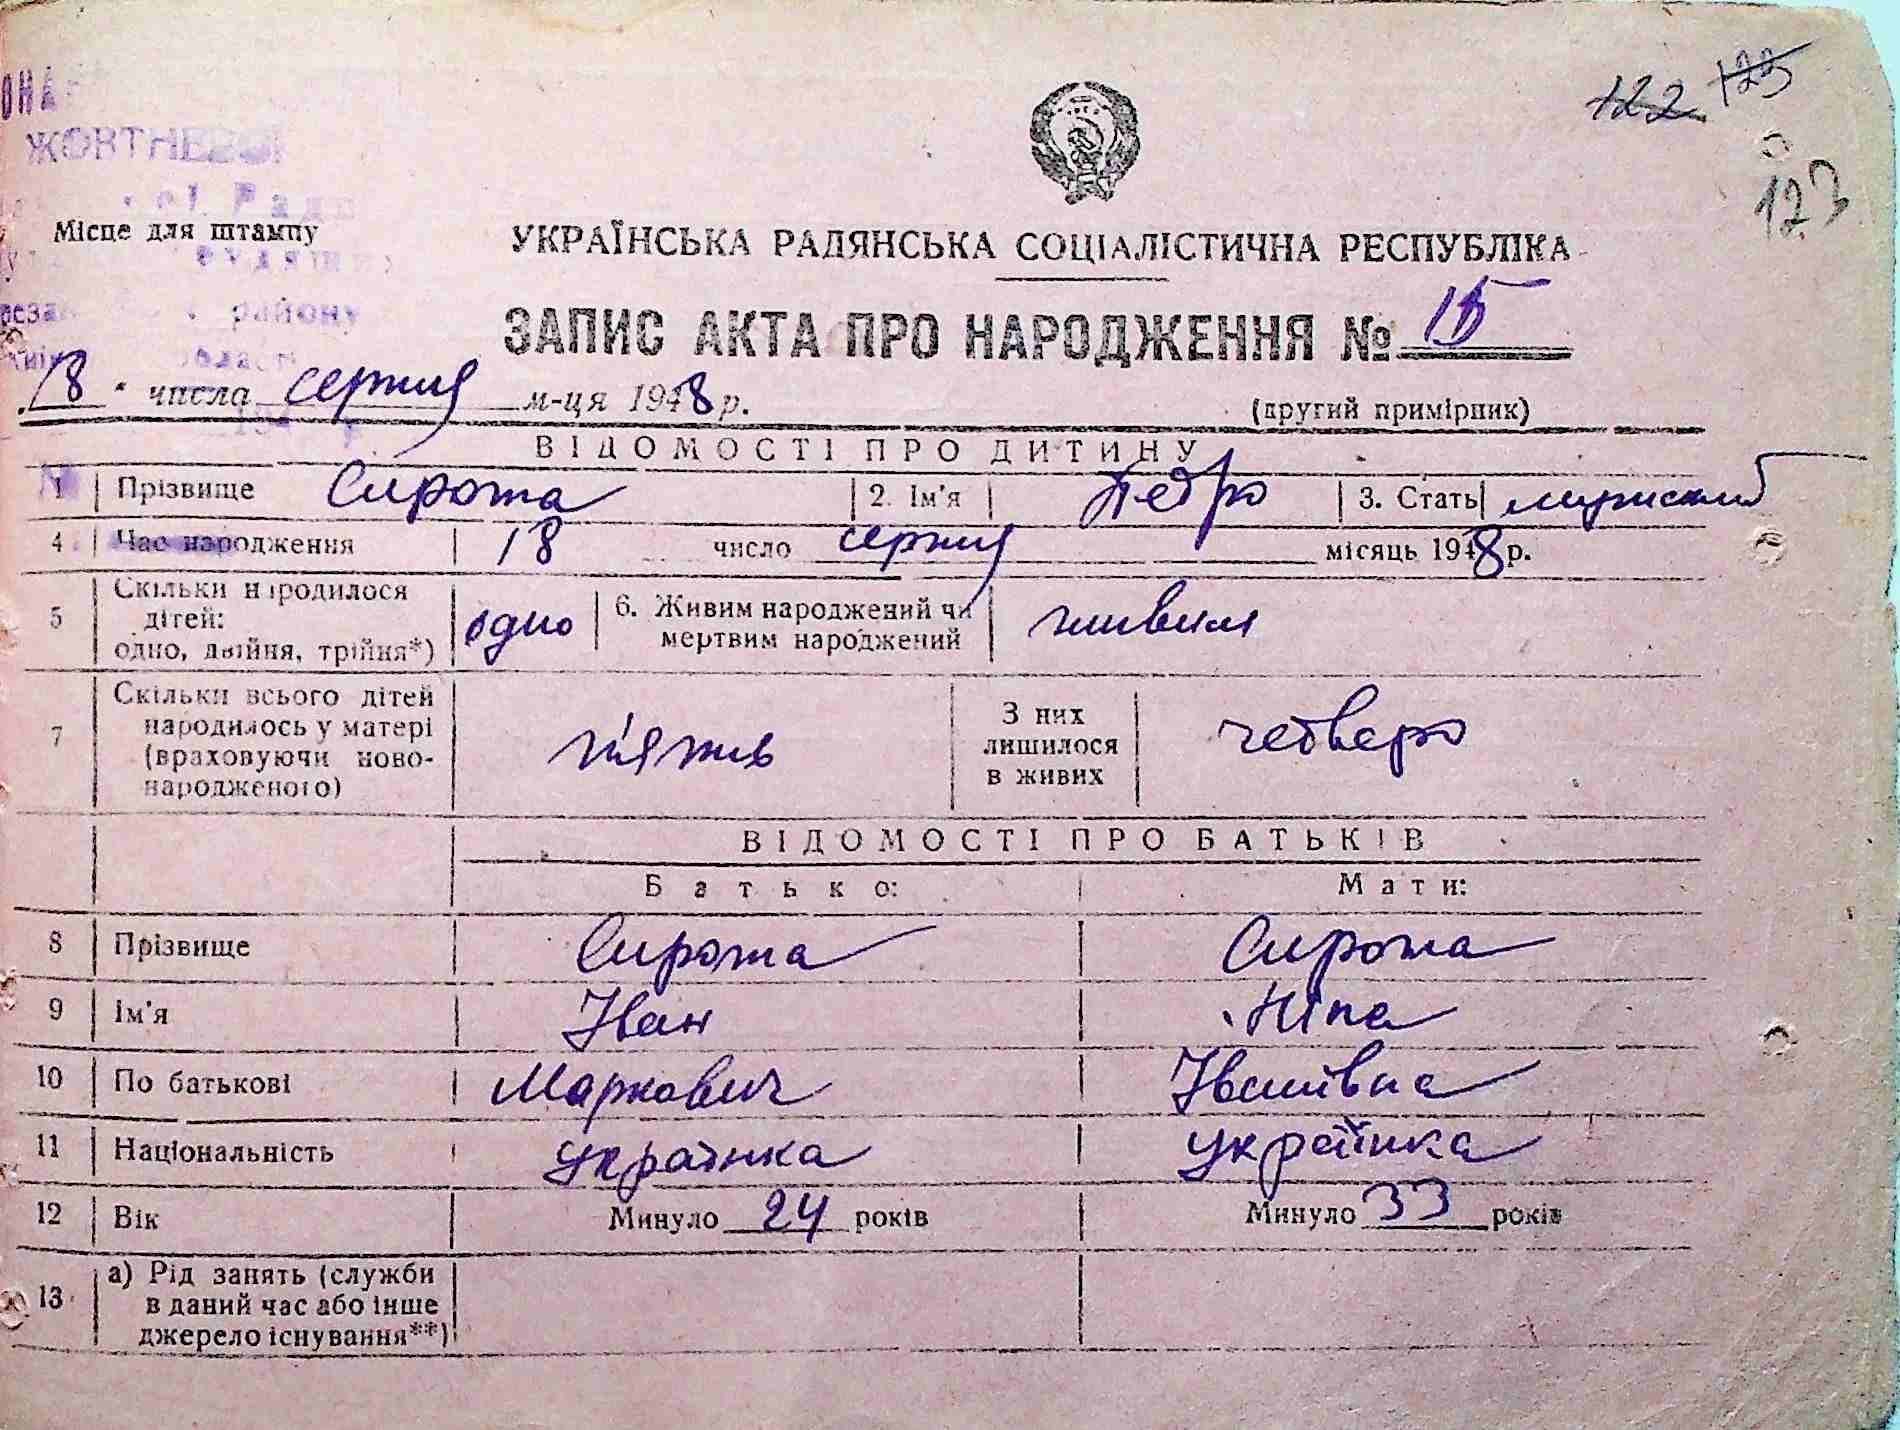 122 123
123
ЖОВТНЕВОЇ
Рад
Місце для штампу
УКРАЇНСЬКА РАДЯНСЬКА СОЦІАЛІСТИЧНА РЕСПУБЛІКА
району
ЗАПИС АКТА ПРО НАРОДЖЕННЯ № 15
18 числа серпня м-ця 1948 р.
(другий примірник)
ВІДОМОСТІ ПРО ДИТИНУ
1 Прізвище Сирота 2. Ім'я Петро 3. Стать мужский
4 Час народження 18 число серпня місяць 1948 р.
5 Скільки народилося дітей: одно, двійня, трійня*) одно 6. Живим народжений чи мертвим народжений живим
7 Скільки всього дітей народилось у матері (враховуючи новонародженого) п'ять З них лишилося в живих четверо
ВІДОМОСТІ ПРО БАТЬКІВ
Батько: Мати:
8 Прізвище Сирота Сирота
9 Ім'я Іван Ніна
10 По батькові Маркович Іванівна
11 Національність українка українка
12 Вік Минуло 24 років Минуло 33 років
13 а) Рід занять (служби
в даний час або інше
джерело існування**)